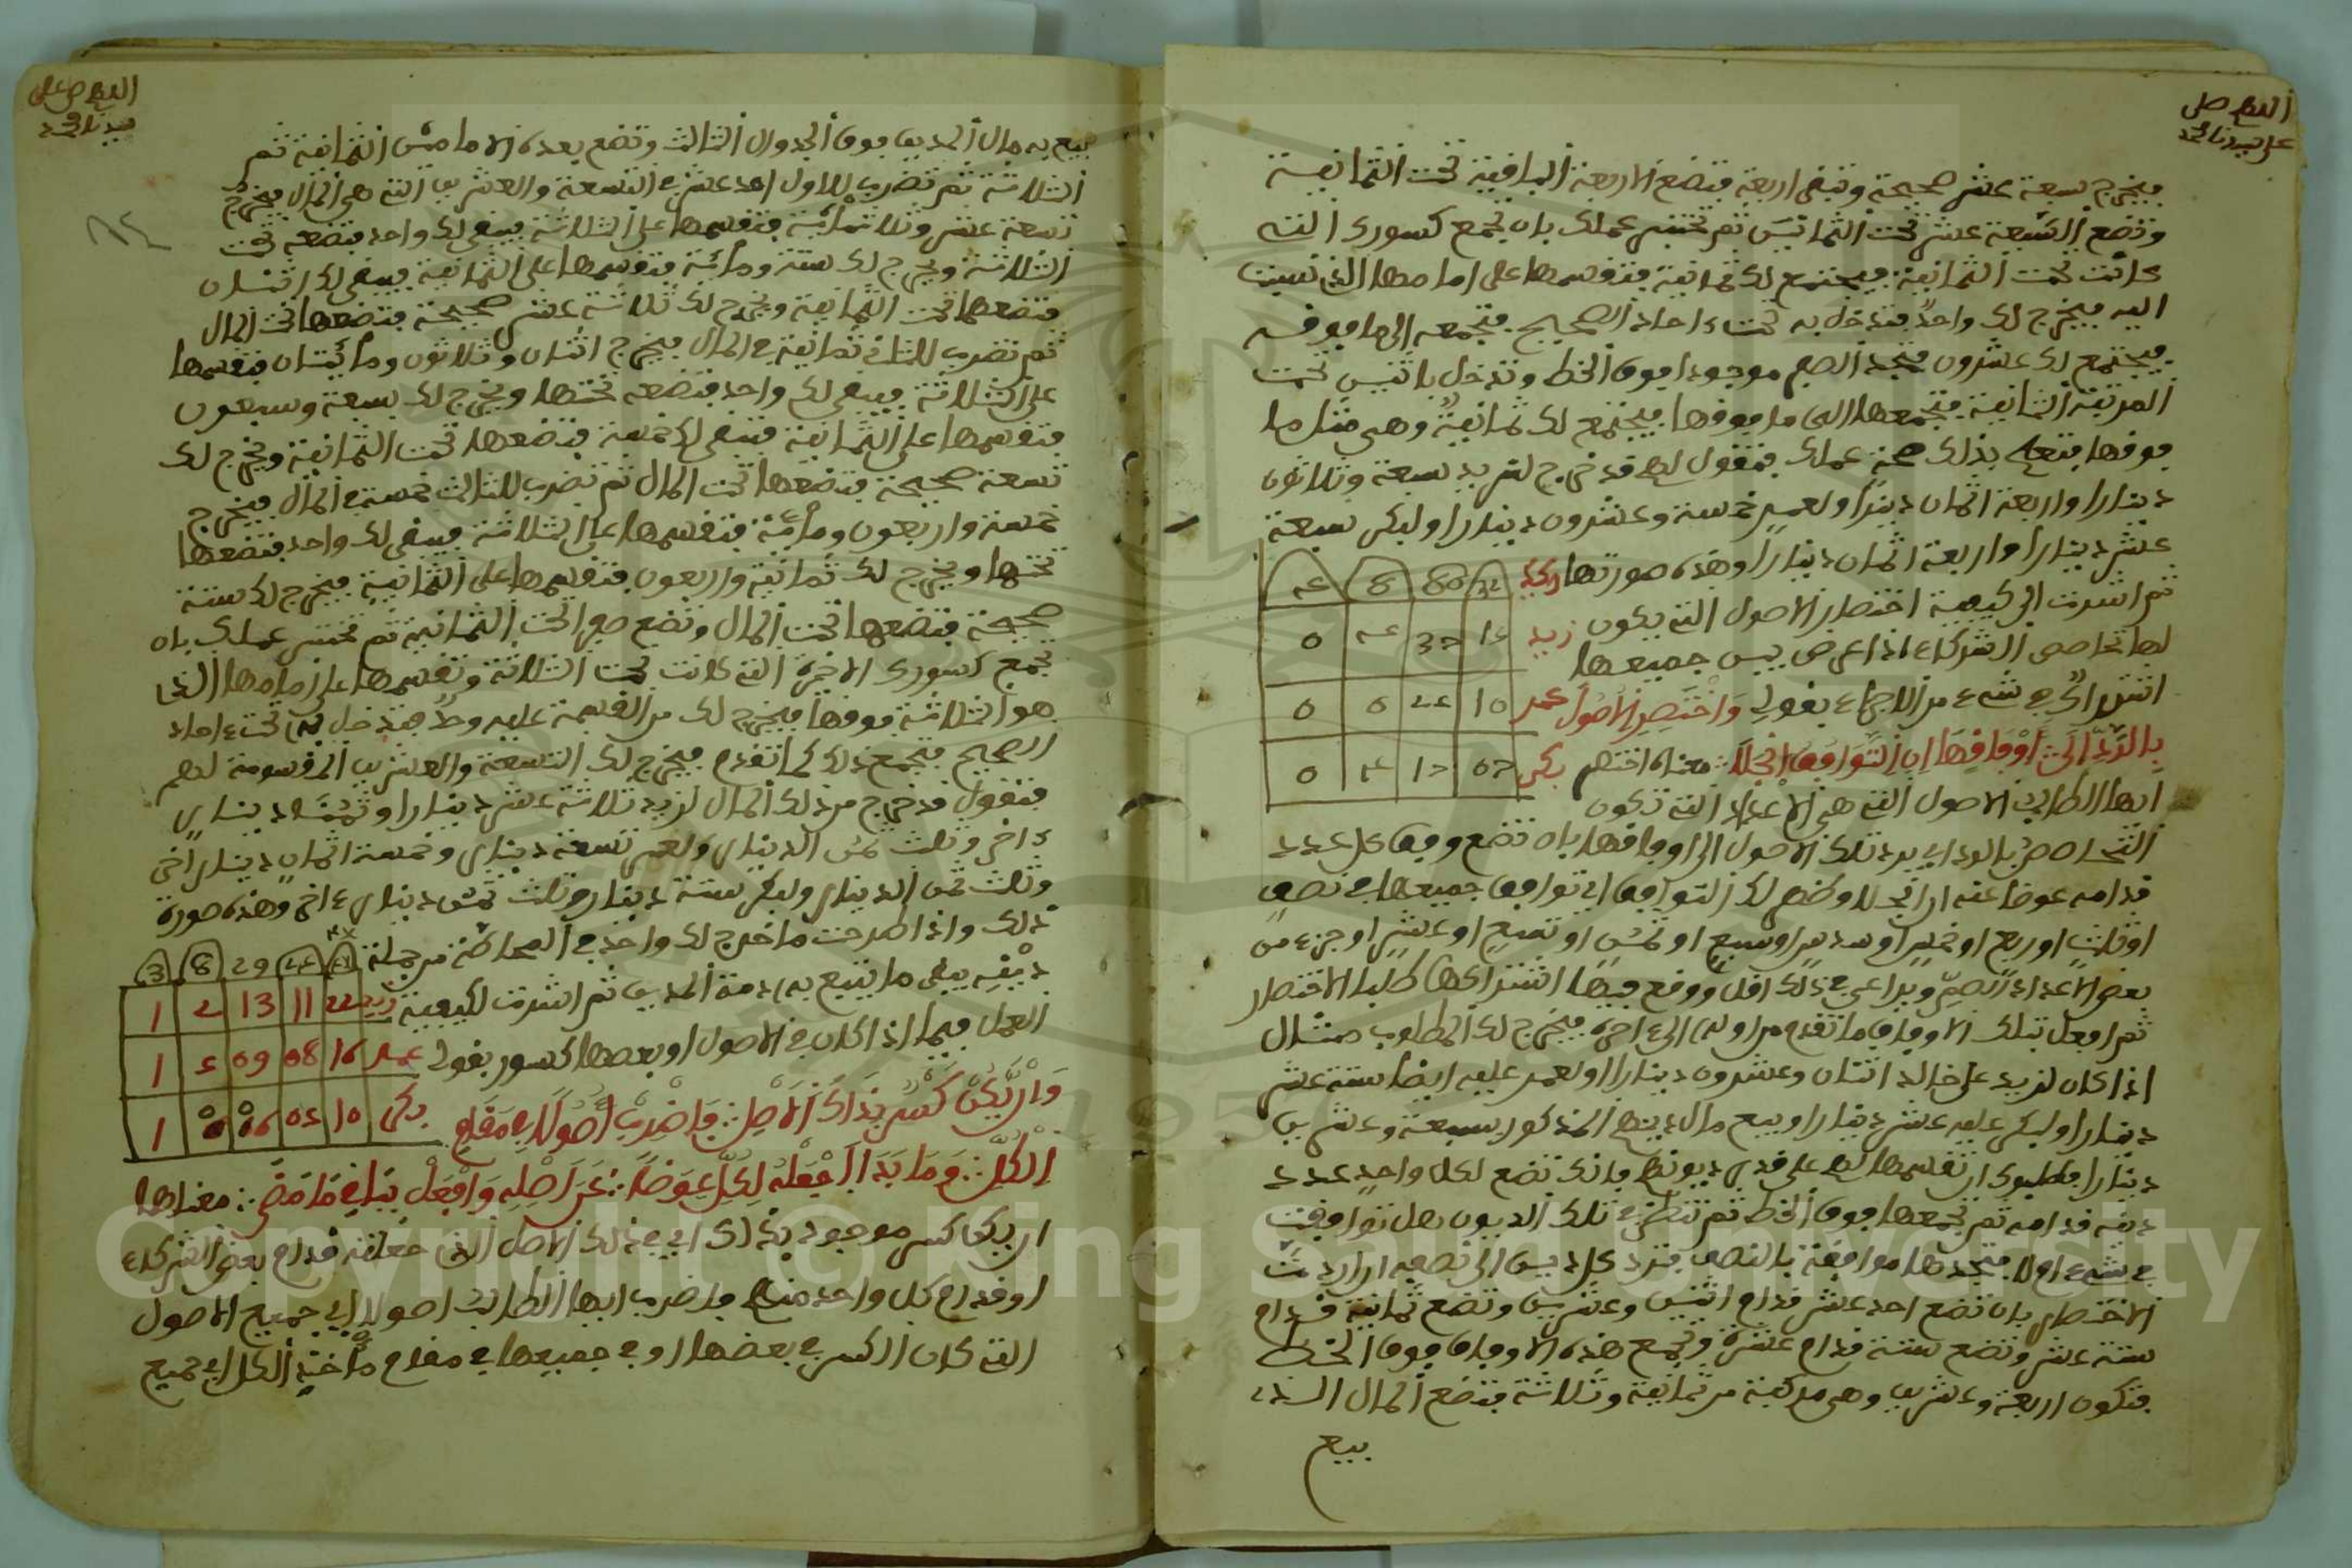 اللهم صل
على سيدنا محمد
فيخرج سبعة عشر صحيحة وتبقى اربعة فتضع الاربعة الباقية تحت الثمانية
وتضع السبعة عشر تحت الثمانين ثم تختبر عملك بان تجمع كسورك التى
كانت تحت الثمانية فيجتمع لك ثمانية فتقسمها على امامها الذى نسبت
اليه فيخرج لك واحد فتدخل به تحت ءاحاد الصحيح فتجمعه الى ما فوقه
فيجتمع لك عشرون فتجد الصفر موجودا فوق الخط وتدخل باثنين تحت
المرتبة الثانية فتجمعها الى ما فوقها فيجتمع لك ثمانية وهى مثل ما
فوقها فتعلم بذلك صحة عملك فتقول لهم قد خرج لزيد سبعة وثلاثون
دينارا واربعة اثمان دينار ولعمر خمسة وعشرون دينارا ولبكر سبعة
عشر دينارا واربعة اثمان دينارا وهذه صورتها
ثم اشرت الى كيفية اختصار الاصول التى يكون
لها تحاصص الشركاء اذا عرض بين جميعها
اشتراك فى شىء من الاجزاء بقولى واختصر الاصول
بالرد الى اوفاقها ان التوافق انجلا معناه اختصر
ايها الطالب الاصول التى هى الاعداد التى تكون
زيد
عمر
بكر
التحاصص بالرد اى برد تلك الاصول الى اوفاقها بان تضع وفق كل عدد
قدامه عوضا عنه ان انجلا وظهر لك التوافق اى توافق جميعها فى نصف
او ثلث او ربع او خمس او سدس او سبع او ثمن او تسيع او عشر او جزء من
بعض الاعداد الصم ويراعى فى ذلك اقل ووقع فيها اشتراكها طلبا للاختصار
ثم افعل بتلك الاوفاق ما تقدم من اوله الى ءاخره فيخرج لك المطلوب مثال
اذا كان لزيد على خالد اثنان وعشرون دينارا ولعمر عليه ايضا ستة عشر
دينارا ولبكر عليه عشر دينارا وبيع مال مدينهم المذكور بسبعة وعشرين
دينارا فطلبوك ان تقسمها لهم على قدر ديونهم فانك تضع لكل واحد عدد
دينه قدامه ثم تجمعها فوق الخط ثم تنظر فى تلك الديون هل توافقت
فى شىء اولا فتجدها موافقة بالنصف فترد كل دين الى نصفه ان اردت
الاختصار بان تضع احد عشر قدام اثنين وعشرين وتضع ثمانية قدام
ستة عشر وتضع ستة قدام عشرة وتجمع هذه الاوفاق فوق الخط
فتكون اربعة وعشرين وهى مركبة من ثمانية وثلاثة فتضع المال الذى
بيع
اللهم صل على
سيدنا محمد
بيع به مال المدين فوق الجدول الثالث وتضع بعده الامامين الثمانية ثم
الثلاثة ثم تضرب للاول احد عشر فى التسعة والعشرين التى هى المال فيخرج
تسعة عشر وثلاثمائة فتقسمها على الثلاثة فيبقى لك واحد فتضعه تحت
الثلاثة ويخرج لك ستة ومائة فتقسمها على الثمانية فيبقى لك اثنان
فتضعهما تحت الثمانية ويخرج لك ثلاثة عشر صحيحة فتضعها تحت المال
ثم تضرب للثانى ثمانية فى المال فيخرج اثنان وثلاثون ومائتان فتقسمها
على الثلاثة فيبقى لك واحد فتضعه تحتها ويخرج لك سبعة وسبعون
فتقسمها على الثمانية فتبقى لك خمسة فتضعها تحت الثمانية ويخرج لك
تسعة صحيحة فتضعها تحت المال ثم تضرب للثالث خمسة فى المال فيخرج
خمسة واربعون ومائة فتقسمها على الثلاثة فيبقى لك واحد فتضعها
تحتها ويخرج لك ثمانية واربعون فتقسمها على الثمانية فيخرج لك ستة
صحيحة فتضعها تحت المال وتضع صفرا تحت الثمانية ثم تختبر عملك بان
تجمع كسورك الاخرة التى كانت تحت الثلاثة وتقسمها على امامها الذى
هو الثلاثة فوقها فيخرج لك من القسمة عليه واحد فتدخل به تحت ءاحاد
الصحيح فتجمع ذلك كما تقدم فيخرج لك التسعة والعشرين المقسومة لهم
فتقول قد خرج من ذلك المال لزيد ثلاثة عشر دينارا وثمنا دينار
ءاخر وثلث ثمن الدينار ولعمر تسعة دينار وخمسة اثمان دينار اخر
وثلث ثمن الدينار ولبكر ستة دينار وثلث ثمن دينار ءاخر وهذه صورة
ذلك واذا طرحت ما خرج لك واحد فى المحاصة من جملة
دينه يبقى ما يتبع به ذمة المدين ثم اشرت لكيفية
العمل فيما اذا كان فى الاصول او بعضها كسور بقولى
وان يكن كسر بذاك الاصل فاضرب اصولا فى مقام
زيد 22 11 13 2 1
عمر 16 08 09 5 1
بكر 10 05 06 0 1
الكل وما بدا اجعله لكل عوضا عن اصله وافعل بباق ما مضى معناها
ان يكن كسر موجود بذاك اى فى ذلك الاصل الذى جعلته قدام بعض الشركاء
او قدام كل واحد منهم فاضرب ايها الطالب اصولا اى جميع الاصول
التى كان الكسر فى بعضها او فى جميعها فى مقام مأخذ الكل اى جميع